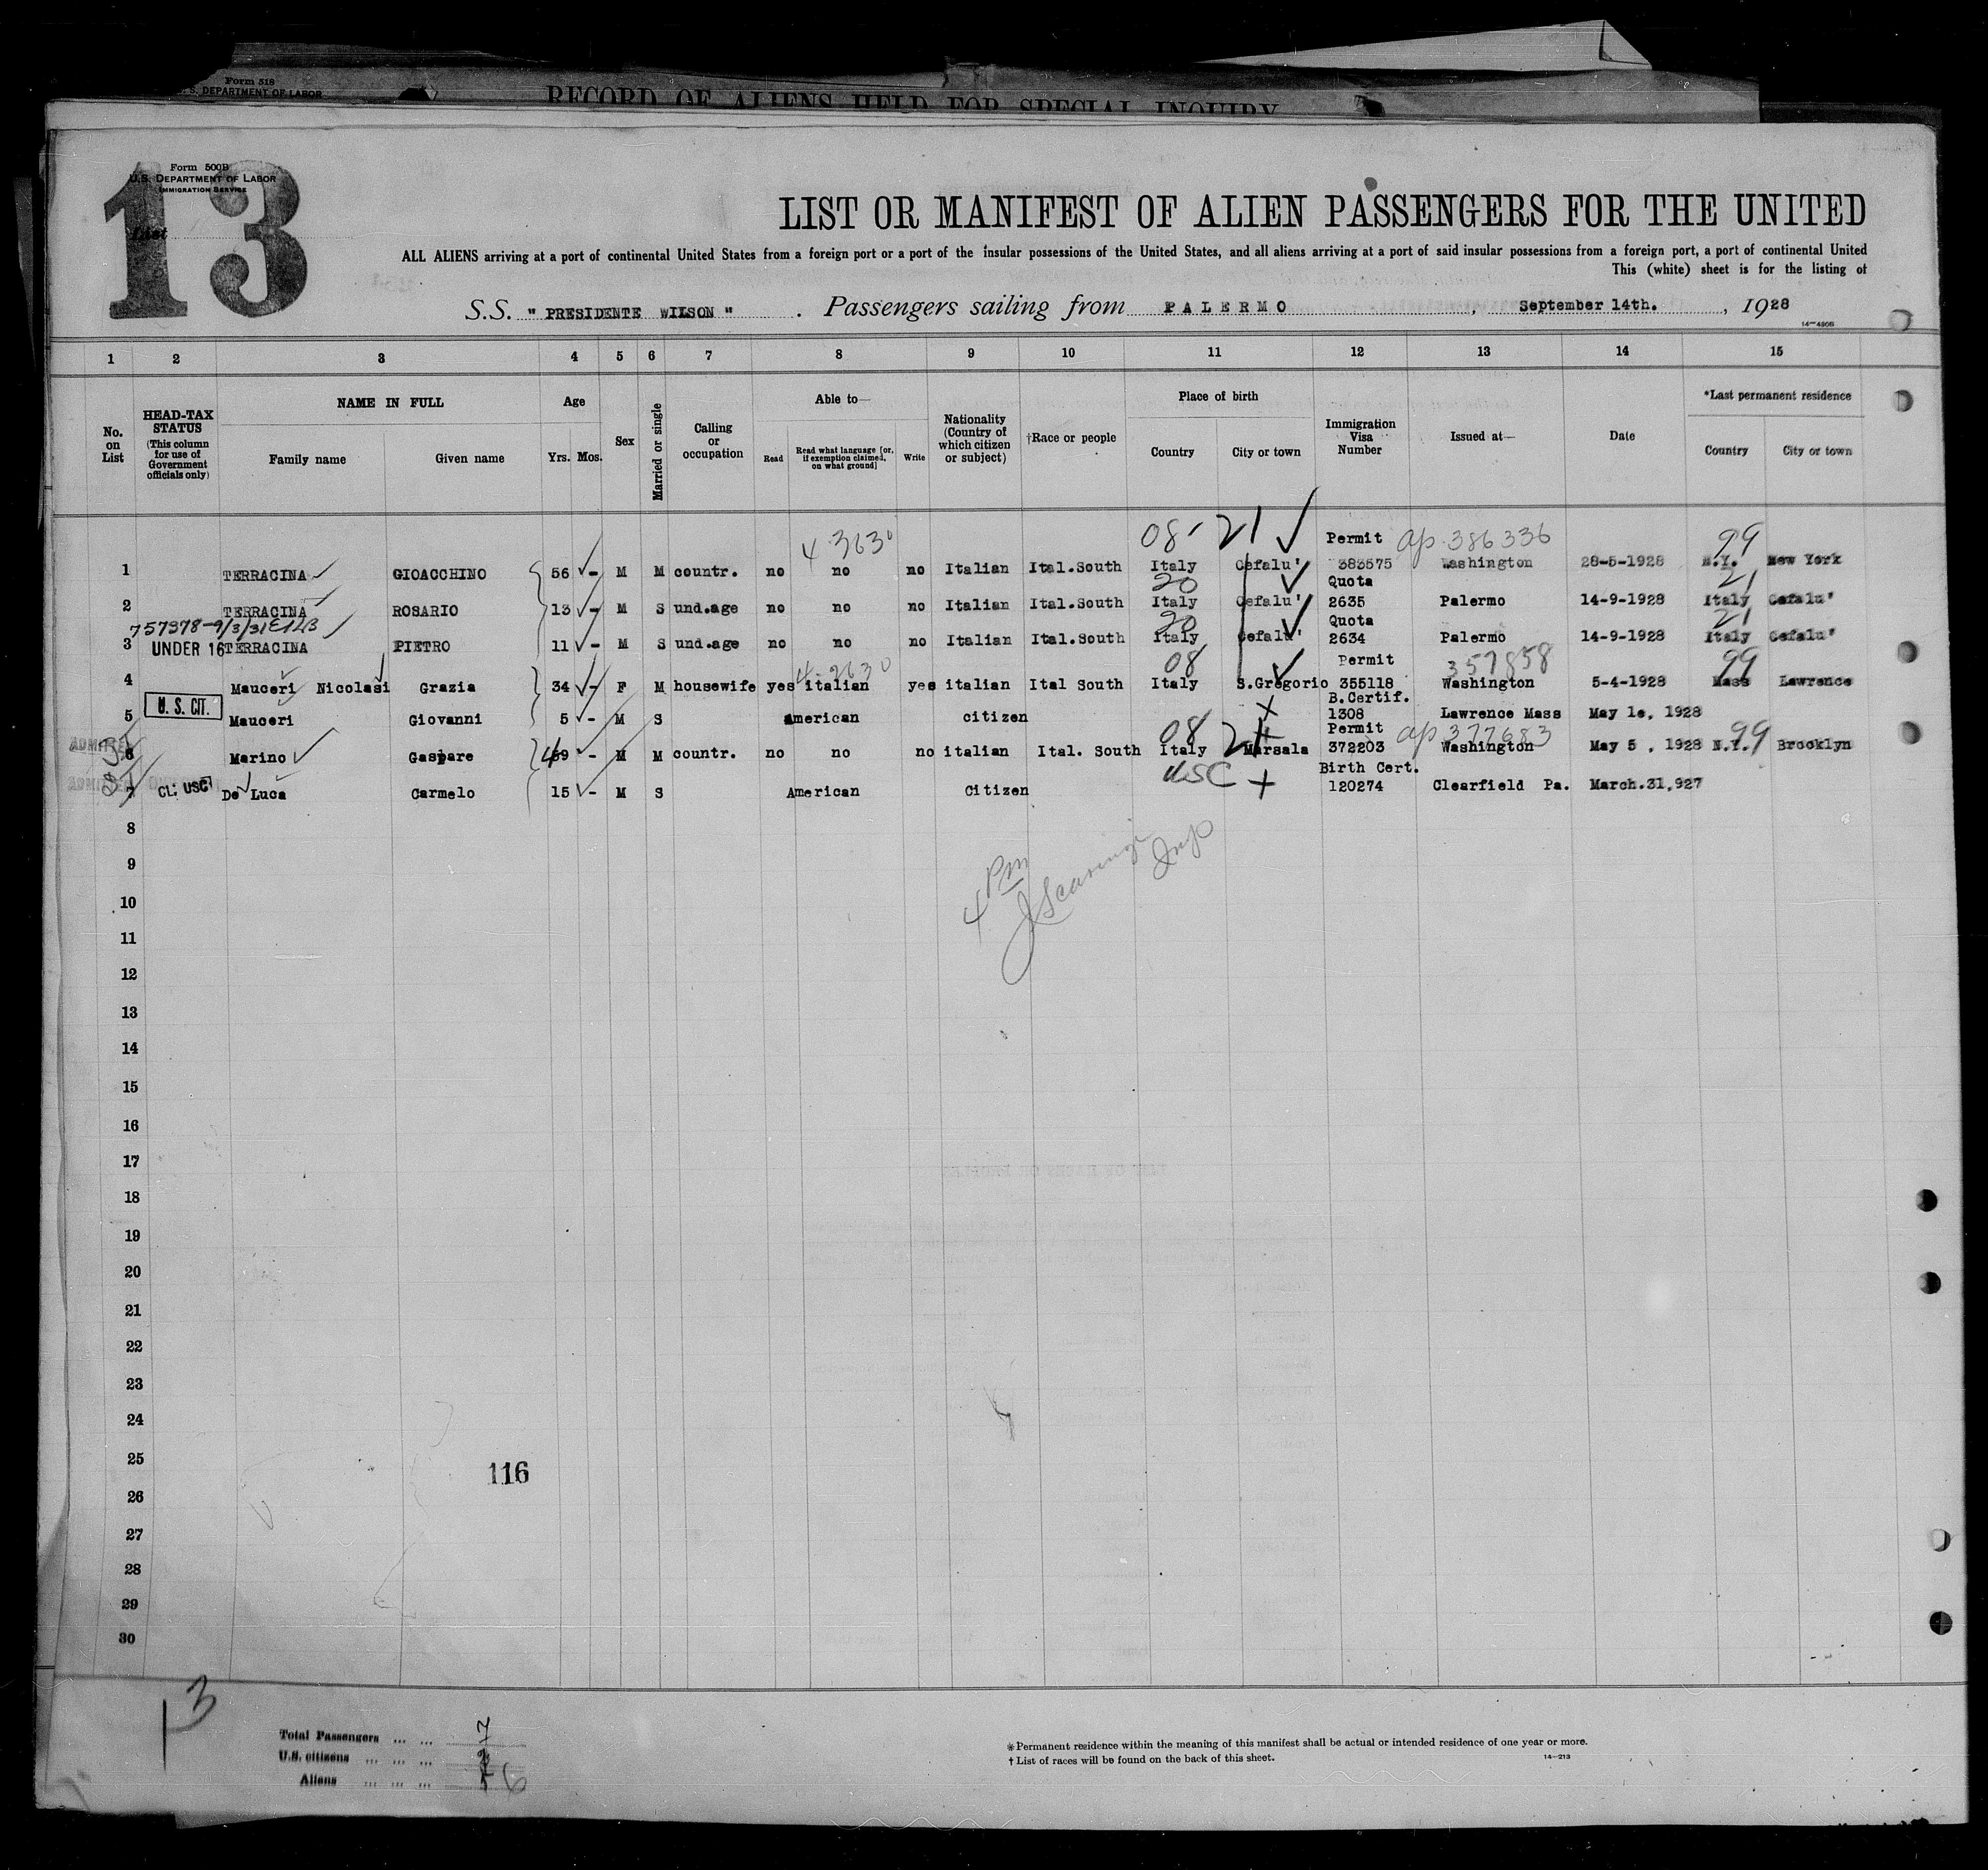 Form 518
U. S. DEPARTMENT OF LABOR
RECORD OF ALIENS HELD FOR SPECIAL INQUIRY
13
Form 500B
U.S. DEPARTMENT OF LABOR
IMMIGRATION SERVICE
List
LIST OR MANIFEST OF ALIEN PASSENGERS FOR THE UNITED
ALL ALIENS arriving at a port of continental United States from a foreign port or a port of the insular possessions of the United States, and all aliens arriving at a port of said insular possessions from a foreign port, a port of continental United
This (white) sheet is for the listing of
S.S. " PRESIDENTE WILSON " . Passengers sailing from PALERMO , September 14th. , 1928
14-430B
1 2 3 4 5 6 7 8 9 10 11 12 13 14 15
No. on List
HEAD-TAX STATUS (This column for use of Government officials only)
NAME IN FULL
Family name Given name
Age
Yrs. Mos.
Sex
Married or single
Calling or occupation
Able to—
Read Read what language [or, if exemption claimed, on what ground] Write
Nationality (Country of which citizen or subject)
†Race or people
Place of birth
Country City or town
Immigration Visa Number
Issued at—
Date
*Last permanent residence
Country City or town
4-3630 08-21 Permit ap 386336 99
1 TERRACINA GIOACCHINO 56 - M M countr. no no no Italian Ital.South Italy Cefalu' 383575 Washington 28-5-1928 N.Y. New York
20 Quota 21
2 TERRACINA ROSARIO 13 - M S und.age no no no Italian Ital.South Italy Cefalu' 2635 Palermo 14-9-1928 Italy Cefalu'
757378-9/3/31 20 Quota 21
3 UNDER 16 TERRACINA PIETRO 11 - M S und.age no no no Italian Ital.South Italy Cefalu' 2634 Palermo 14-9-1928 Italy Cefalu'
4-2630 08 Permit 357858 99
4 Mauceri Nicolasi Grazia 34 - F M housewife yes italian yes italian Ital South Italy S.Gregorio 355118 Washington 5-4-1928 Mass Lawrence
U. S. CIT. B.Certif.
5 Mauceri Giovanni 5 - M S American citizen 1308 Lawrence Mass May 1e, 1928
ADMITTED 08 21 Permit ap 377683 99
6 Marino Gaspare 49 - M M countr. no no no italian Ital. South Italy Marsala 372203 Washington May 5 , 1928 N.Y. Brooklyn
ADMITTED USC Birth Cert.
7 CL: USC De Luca Carmelo 15 - M S American Citizen 120274 Clearfield Pa. March.31,927
8
4 PM
9
10
11
12
13
14
15
16
17
18
19
20
21
22
23
24
25
116
26
27
28
29
30
13
Total Passengers ... ... 7
U.S. citizens ... ... ...
Aliens ... ... ... 6
*Permanent residence within the meaning of this manifest shall be actual or intended residence of one year or more.
† List of races will be found on the back of this sheet.
14-213